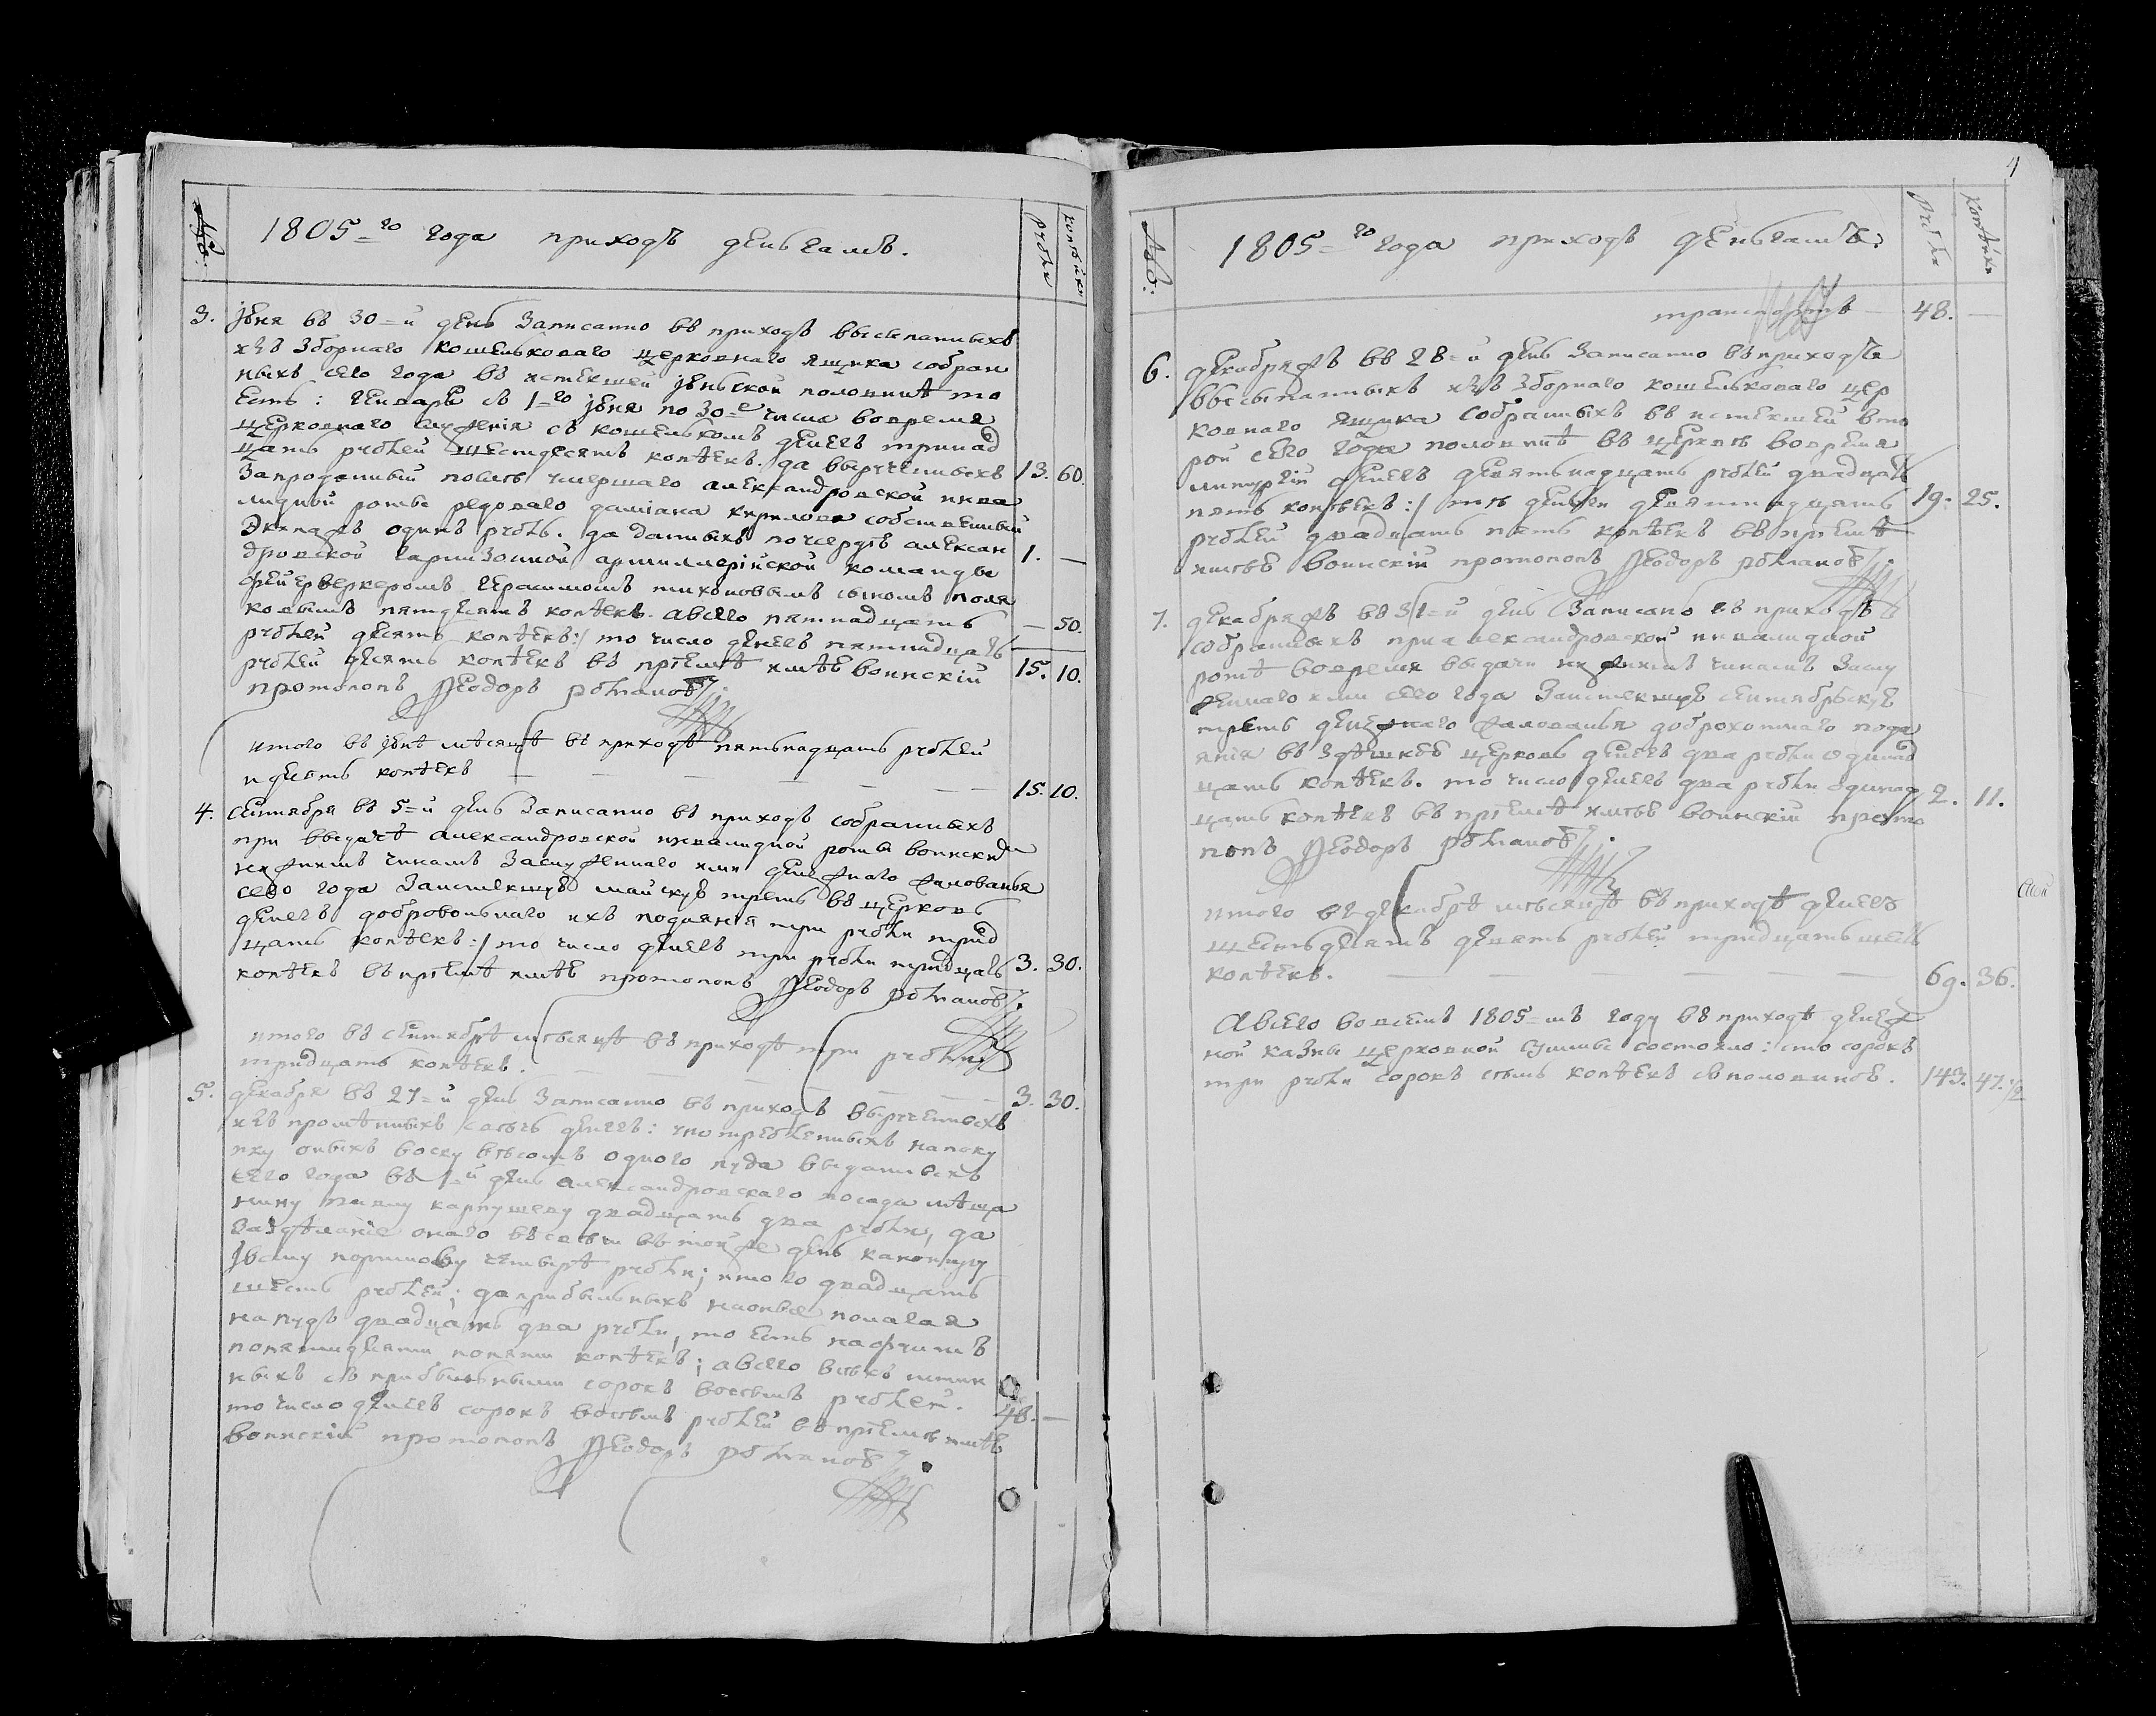 №:
1805=го года приходъ деньгамъ.
рубли
копѣйки
3. Іюня въ 30=й день Записанно въ приходъ высыпанныхъ
изъ Зборнаго кошельковаго церковнаго ящика собран
ныхъ сего года въ истекшей іюньской половинѣ то
есть: генваря съ 1=го іюня по 30=е числа вовремя
церковнаго служенія съ кошелькомъ денегъ тринад
цать рублей шестдесятъ копѣекъ. да вырученныхъ 13. 60.
Запроданный послѣ умершаго александровской инва
лидной роты редоваго даміана кирилова собственный
Экипажъ одинъ рубль. да данныхъ почердѣ алексан 1. —
дровской гарнизонной артиллерійской команды
фейерверкеромъ герасимомъ тихоновымъ сыномъ поля
ковымъ пятдесятъ копѣекъ. авсего пятнадцать — 50.
рублей десять копѣекъ:/ то число денегъ пятнадцать
рублей десять копѣекъ въ пріемѣ имѣе воинскій 15. 10.
протопопъ Ѳеодоръ романовъ/.
итого въ іюнѣ мѣсяцѣ въ приходѣ пятьнадцать рублей
и десять копѣекъ — — — — — 15. 10.
4. Сентября въ 5=й день Записанно въ приходъ собранныхъ
при выдачѣ александровской инвалидной роты воински
нижнимъ чинамъ Заслуженнаго ими денежнаго жалованья
сего года Заистекшую майскую треть въ церковь
денегъ добровольнаго ихъ подаянія три рубли трид
цать копѣекъ:/ то число денегъ три рубли тридцать 3. 30.
копѣекъ въ пріемѣ имѣе протопопъ Ѳеодоръ романовъ/.
итого въ сентябрѣ мѣсяцѣ въ приходѣ три рубли
тридцать копѣекъ. — — — — — 3. 30.
5. декабря въ 27=й день Записанно въ приходъ вырученныхъ
изъ промѣнныхъ свѣчь денегъ: употребленныхъ напоку
пку оныхъ воску вѣсомъ одного пуда выданныхъ
сего года въ 1=й день александровскаго посада мѣща
нину карпушену двадцать два рубли, да
Заздѣланіе онаго въсвѣчи въ тойже день
четыре рубли; итого двадцать
шесть рублей; даприбыльныхъ наоные полагая
напудъ двадцать два рубли, то есть нафунтъ
попятидесяти попяти копѣекъ; авсего всѣхъ истин
ныхъ съ прибыльными сорокъ восемь рублей.
то число денегъ сорокъ восемь рублей въ пріемѣ имѣе 48. —
воинскій протопопъ Ѳеодоръ романовъ/.
4
№:
1805=го года приходъ деньгамъ:
рубли
копѣйки
транспортъ — 48. —
6. декабряжъ въ 28=й день Записанно въ приходъ
высыпанныхъ изъ Зборнаго кошельковаго цер
ковнаго ящика собранныхъ въ истекшей вто
рой сего года половинѣ въ церквѣ вовремя
литургій денегъ девятьнадцать рублей двадцать
пять копѣекъ:/ тѣ деньги девятнадцать 19. 25.
рублей двадцать пять копѣекъ въ пріемѣ
имѣе воинскій протопопъ Ѳеодоръ романовъ/.
7. декабряжъ въ 31=й день Записано въ приходъ
собранныхъ приалександровской инвалидной
ротѣ вовремя выдачи нижнимъ чинамъ Заслу
женнаго ими сего года Заистекшую сентябрьскую
треть денежнаго жалованья доброхотнаго пода
янія въ Здѣшнюю церковь денегъ два рубли одинад
цать копѣекъ. то число денегъ два рубли одинад 2. 11.
цать копѣекъ въ пріемѣ имѣе воинскій прото
попъ Ѳеодоръ романовъ/.
итого въ декабрѣ мѣсяцѣ въ приходѣ денегъ
шестьдесятъ девять рублей тридцать шесть
копѣекъ. — — — — — 69. 36.
Авсего вовсемъ 1805=мъ году въ приходѣ денеж
ной казны церковной суммы состояло: сто сорокъ
три рубли сорокъ семь копѣекъ съполовиною. 143. 47. 1/2